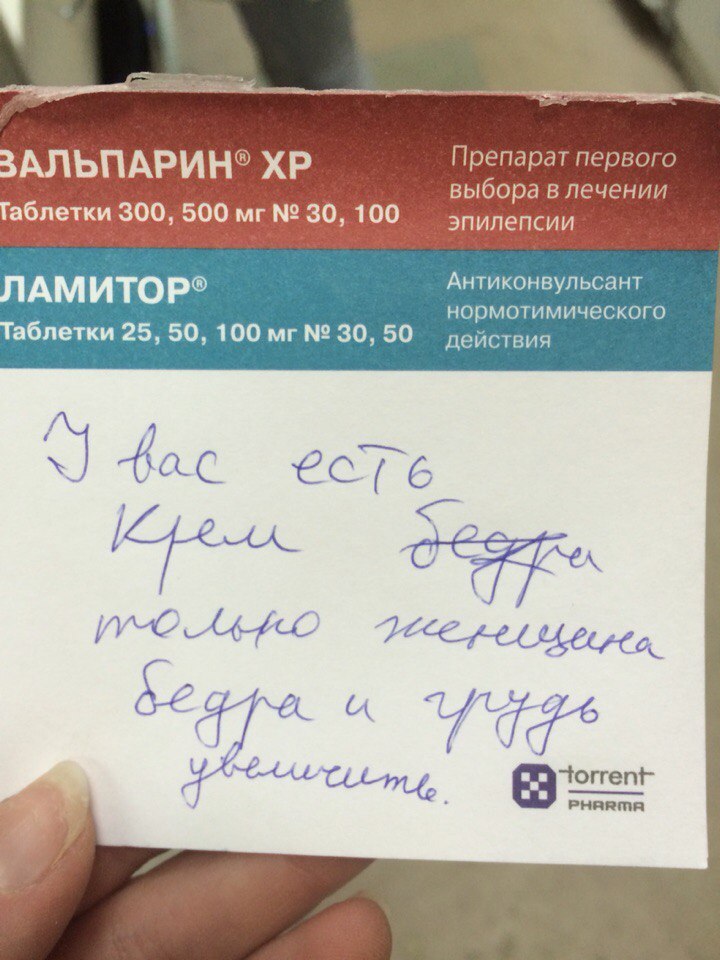 ВАЛЬПАРИН® ХР
Таблетки 300, 500 мг № 30, 100
Препарат первого
выбора в лечении
эпилепсии
ЛАМИТОР®
Таблетки 25, 50, 100 мг № 30, 50
Антиконвульсант
нормотимического
действия
У вас есть
Крем бедра
только женщина
бедра и грудь
увеличить.
torrent
PHARMA